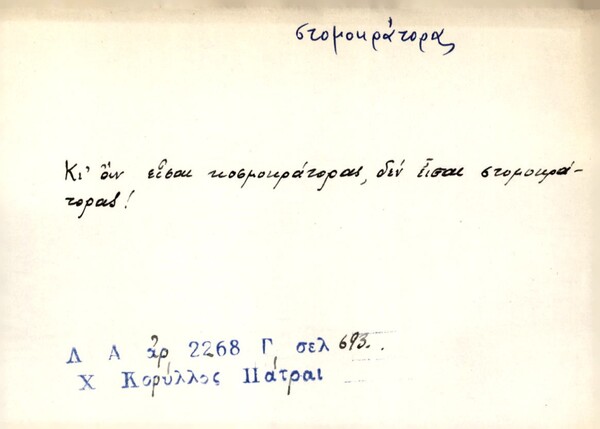 στομοκράτορας
Κι' ἄν εἶσαι κοσμοκράτορας, δέν εἶσαι στομοκρά-
τορας!
Λ Α ἀρ 2268 Γ, σελ 693.
Χ Κορύλλος Πάτραι